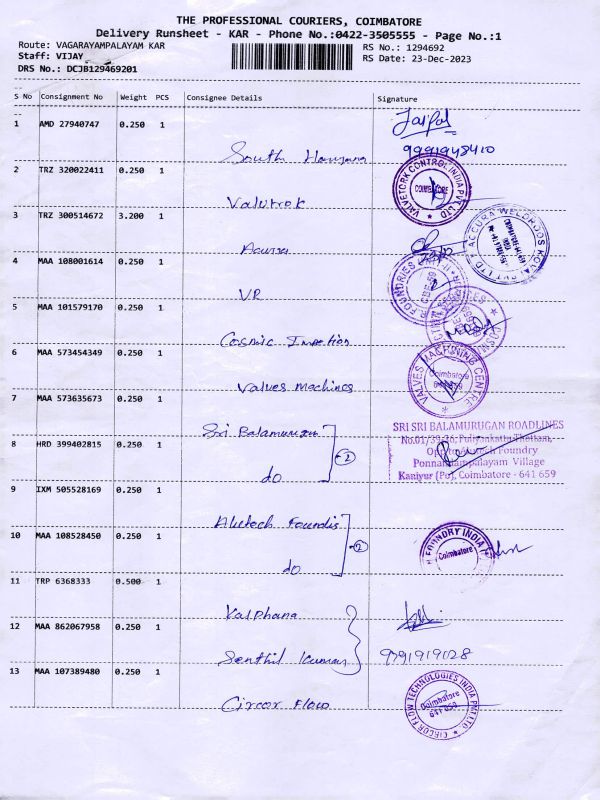 THE PROFESSIONAL COURIERS, COIMBATORE
Delivery Runsheet - KAR - Phone No.:0422-3505555 - Page No.:1
Route: VAGARAYAMPALAYAM KAR
RS No.: 1294692
Staff: VIJAY
RS Date: 23-Dec-2023
DRS No.: DCJB129469201
S No Consignment No Weight PCS Consignee Details Signature
1 AMD 27940747 0.250 1
9991948410
South Haryana
2 TRZ 320022411 0.250 1
VALVETORK CONTROL INDIA PVT LTD
COIMBATORE
Valvtrok
3 TRZ 300514672 3.200 1
Accura
4 MAA 108001614 0.250 1
VR
5 MAA 101579170 0.250 1
Cosmic
6 MAA 573454349 0.250 1
VALVES MACHINING CENTRE
Coimbatore
Valves Machines
7 MAA 573635673 0.250 1
SRI SRI BALAMURUGAN ROADLINES
Sri Balamurugan
8 HRD 399402815 0.250 1
2
Ponnandampalayam Village
do
Kaniyur (Po), Coimbatore - 641 659
9 IXM 505528169 0.250 1
10 MAA 108528450 0.250 1
2
FOUNDRY INDIA
Coimbatore
do
11 TRP 6368333 0.500 1
Kalphana
12 MAA 862067958 0.250 1
Senthil Kumar
9791919028
13 MAA 107389480 0.250 1
CIRCOR FLOW TECHNOLOGIES INDIA PVT LTD
Coimbatore
Circor Flow